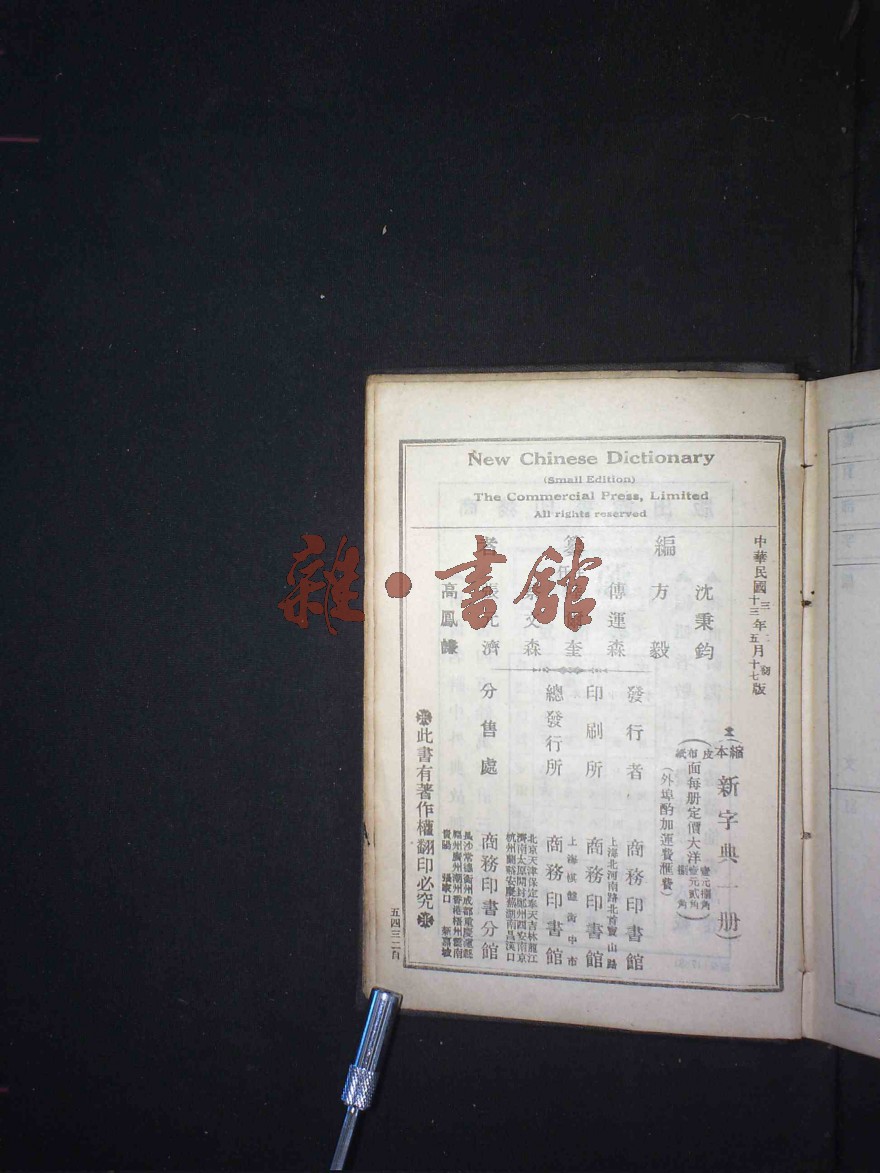 New Chinese Dictionary
(Small Edition)
The Commercial Press, Limited
All rights reserved
中華民國 三年 二月 初版
十三年五月十七版
縮本 新字典一册
皮 布 紙 面每册定價大洋
(外埠酌加運費滙費)
編纂者
沈秉鈞
方毅
傅運森
奎
文森
張元濟
高鳳謙
發行者 商務印書館
上海北河南路北首寶山路
印刷所 商務印書館
上海棋盤街中市
總發行所 商務印書館
北京天津保定奉天吉林龍江
濟南太原開封鄭州西安南京
杭州蘭谿安慶蕪湖南昌漢口
分售處 商務印書分館
長沙常德衡州成都重慶瀘縣
福州廣州潮州香港梧州雲南
貴陽 張家口 新嘉坡
此書有著作權翻印必究
五四三二百
雜·書館